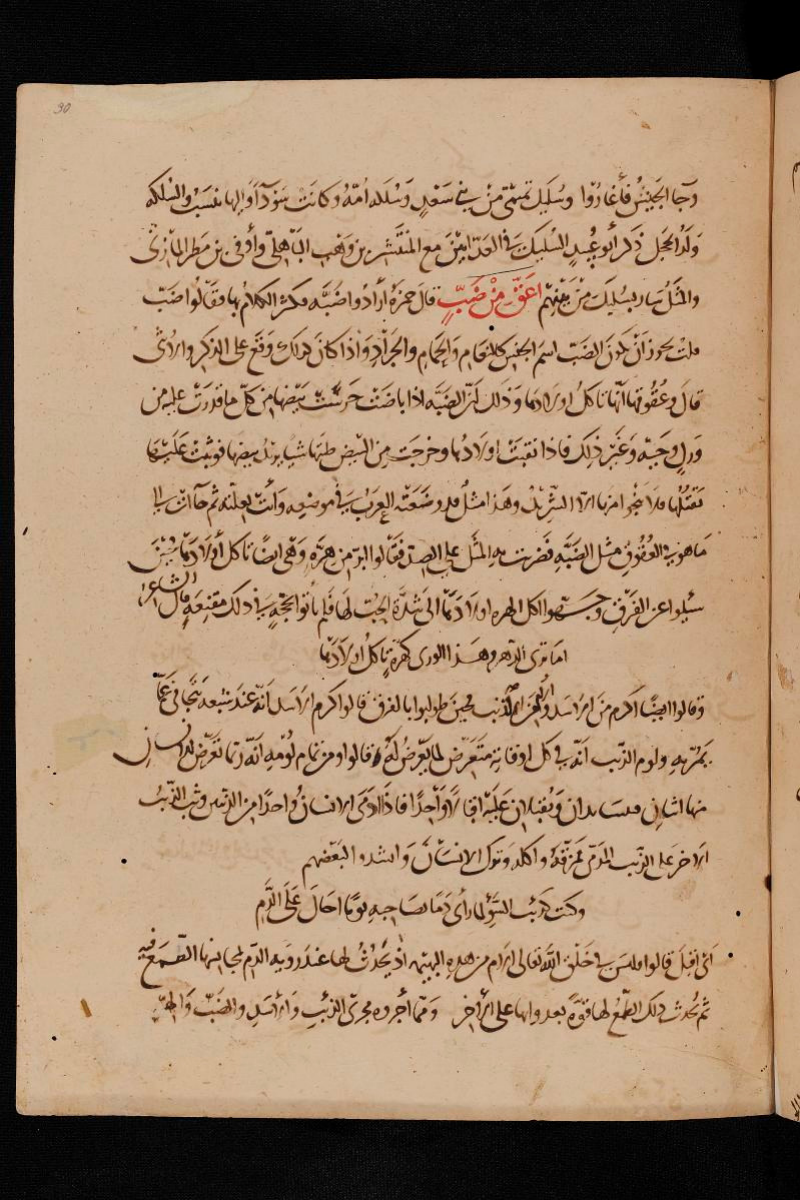 30
وجا الجيش فأغاروا وسليك تميمي من بني سعد وسلكه امه وكانت سودآ واليها نسب والسلكه
ولد الحجل ذكر أبو عبيد السليك في العدائين مع المنتشر بن وهب الباهلي وأوفى بن مطر المازني
والمثل سار بسليك من بينهم اعق من ضب قال حمزة أرادوا ضبه فكثر الكلام بها فقالوا ضب
قلت يجوز ان يكون الضب اسم الجنس كالنعام والحمام والجراد واذا كان كذلك وقع على الذكر والانثى
قال وعقوقها انها تاكل اولادها وذلك ان الضبه اذا باضت حرست بيضها من كل ما قدرت عليه من
ورل وحيه وغير ذلك فاذا نقبت اولادها وخرجت من البيض ظنتها شيا يريد بيضها فوثبت عليها
تقتلها فلا ينجوا منها الا الشريد وهذا مثل قد وضعته العرب في موضعه وأتت بعلته ثم جاءت الى
ما هو في العقوق مثل الضبه فضربت به المثل على الضد فقالوا ابر من هره وهي ايضا تاكل أولادها فحين
سئلوا عن الفرق وجهوا اكل الهره اولادها الى شدة الحب لها فلم يأتوا بحجة في ذلك مقنعه قال الشاعر
اما ترى الدهر وهذا الورى كهرة تاكل اولادها
وقالوا ايضا اكرم من الاسد والأم من الذئب فحين طولبوا بالفرق قالوا كرم الاسد انه عند شبعه يتجافى عما
يمر به ولوم الذئب انه في كل اوقاته متعرض لما يعرض له قالوا ومن تمام لؤمه انه ربما تعرض للانسان
منها اثنان فيتساندان ويقبلان عليه اقبالا واحدا فاذا ادمى الانسان واحدا من الذئبين وثب الذئب
الاخر على الذئب المدمى فمزقه واكله وترك الانسان وانشدوا لبعضهم
وكنت كذئب السؤ لما رأى دما بصاحبه يوما احال على الدم
اي اقبل قالوا وليس في خلق الله تعالى الأم من هذه البهيمه اذ يحدث لها عند رؤية الدم لمجانسها الطمع فيه
ثم يحدث ذلك الطمع لها قوة يعدو ابها على الآخر ومما أجروه مجرى الذئب والاسد والضب والهره